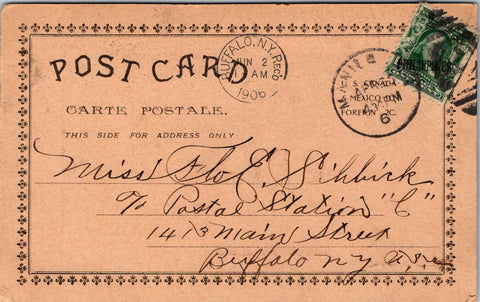 BUFFALO, N.Y. Rec'd
JUN 2
AM
1906
POST CARD
MANILA
APR
6
S. CANADA
MEXICO
FOREIGN
PHILIPPINES
CARTE POSTALE.
THIS SIDE FOR ADDRESS ONLY
Miss Flo E. Sibbick
c/o Postal Station "C"
1473 Main Street
Buffalo N.Y. U.S.A.